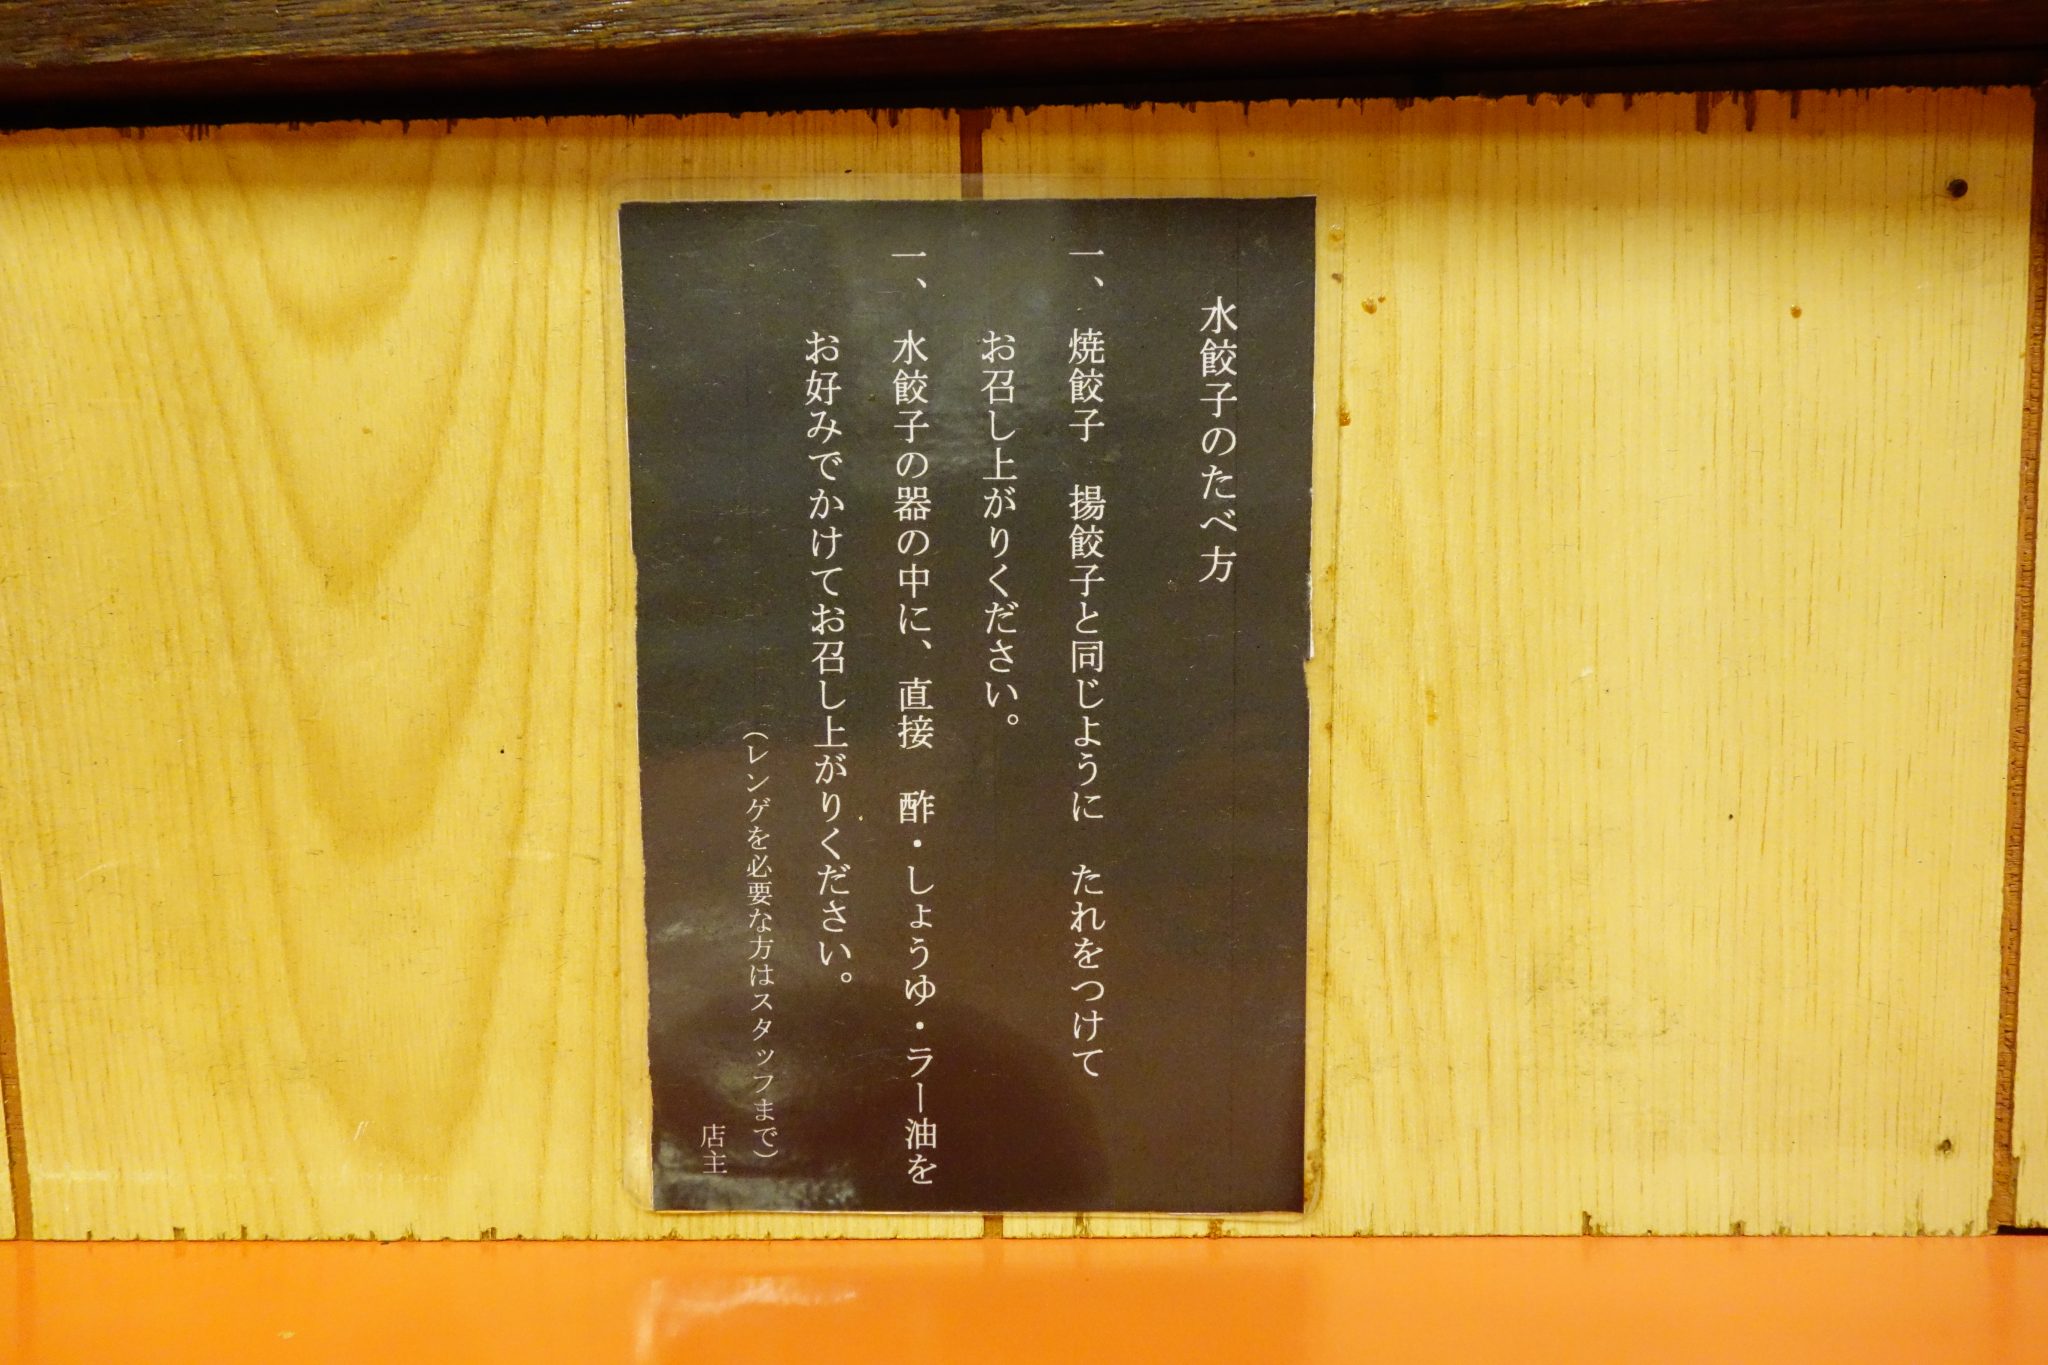 水餃子のたべ方
一、焼餃子　揚餃子と同じように　たれをつけて
お召し上がりください。
一、水餃子の器の中に、直接　酢・しょうゆ・ラー油を
お好みでかけてお召し上がりください。
（レンゲを必要な方はスタッフまで）
店主